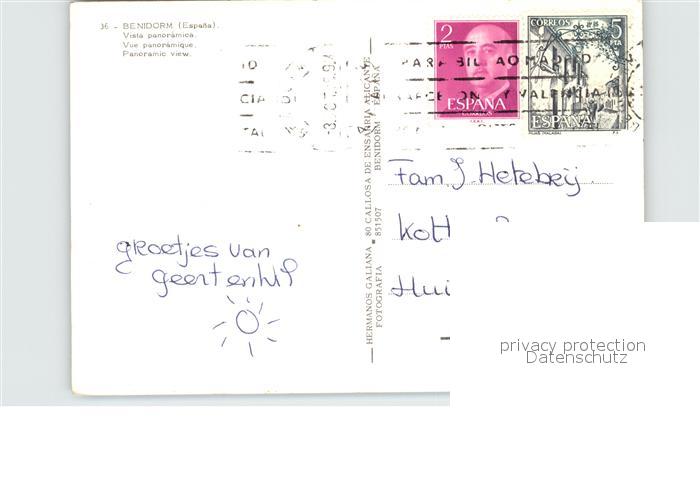 36 - BENIDORM (España).
Vista panorámica.
Vue panoramique.
Panoramic view.
2
PTAS
ESPAÑA
CORREOS 5
PTA
ESPAÑA
PARA BILBAO MADRID
Y VALENCIA
HERMANOS GALIANA - 80 CALLOSA DE ENSARRIA ALICANTE
FOTOGRAFIA 851507 BENIDORM ESPAÑA
groetjes van
geert en
Fam J. Hetebrij
Kott
Hui
privacy protection
Datenschutz